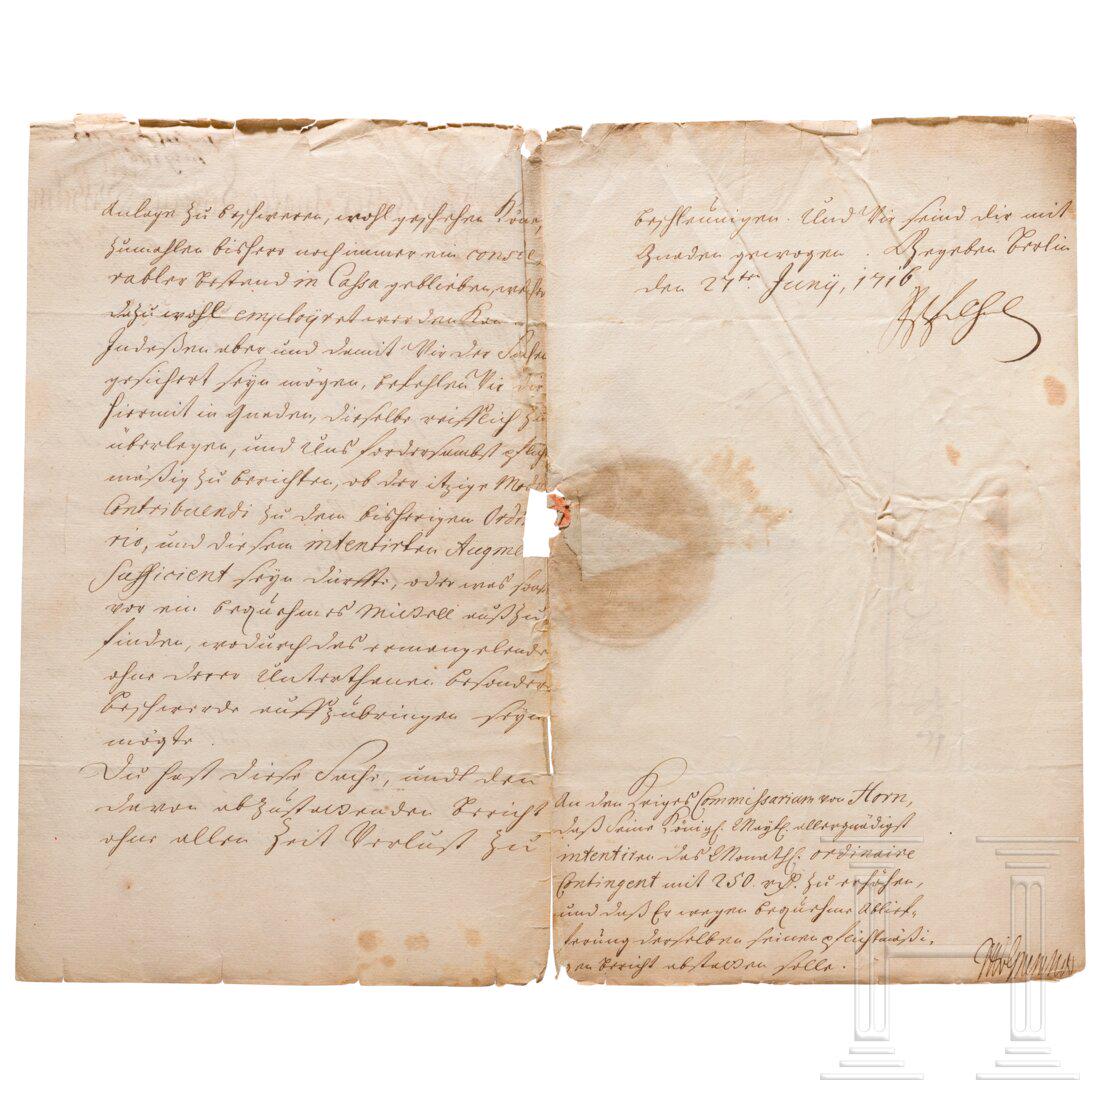 Anlage zu beschweren, wohl geschehen Könne,
zumahlen bishero noch immer ein conside
rabler Bestand in Cassa geblieben, welcher
dazu wohl employret werden kan.
Indeßen aber und damit Wir der Sachen
gesichert seyn mögen, befehlen Wir dir
hiermit in Gnaden, dieselbe reifflich zu
überlegen, und Uns fordersambst pflicht
mäßig zu berichten, ob der itzige Modus
Contribuendi zu dem bisherigen Ordina
rio, und diesem intentirten Augment
sufficient seyn dürffte, oder was sonst
vor ein bequehmes Mittell außzu
finden, wodurch das ermangelende
ohne derer Unterthanen besondere
beschwerde auffzubringen seyn
mögte.
Du hast diese Sache, undt den
davon abzustattenden Bericht
ohne allen Zeit Verlust zu
beschleunigen. Und Wir seind dir mit
Gnaden gewogen. Gegeben Berlin
den 27ten Juny, 1716
An den Kriges Commissarium von Horn,
daß Seine Königl. Mayt. allergnädigst
intentiren das Monathl. ordinaire
Contingent mit 250 rth. zu erhöhen,
und daß Er wegen bequehme Ablief-
ferung derselben seinen pflichtmäßi-
gen Bericht abstatten solle.